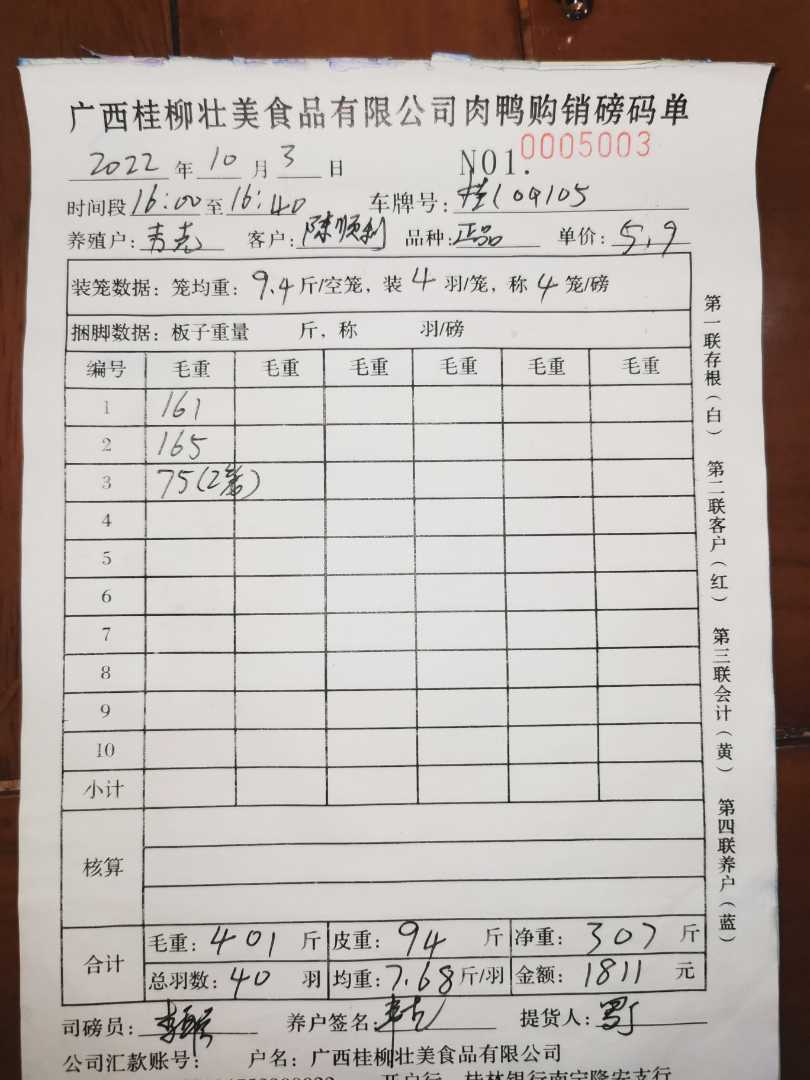 广西桂柳壮美食品有限公司肉鸭购销磅码单
2022 年 10 月 3 日 NO1. 0005003
时间段 16:00 至 16:40 车牌号: 桂L09105
养殖户: 韦克 客户: 陈顺利 品种: 正品 单价: 5.9
装笼数据: 笼均重: 9.4 斤/空笼, 装 4 羽/笼, 称 4 笼/磅
捆脚数据: 板子重量 斤, 称 羽/磅
编号 毛重 毛重 毛重 毛重 毛重 毛重
1 161
2 165
3 75(2笼)
4
5
6
7
8
9
10
小计
核算
合计 毛重: 401 斤 皮重: 94 斤 净重: 307 斤
总羽数: 40 羽 均重: 7.68 斤/羽 金额: 1811 元
司磅员: 养户签名: 韦克 提货人:
公司汇款账号: 户名: 广西桂柳壮美食品有限公司
开户行 桂林银行南宁隆安支行
第一联存根(白) 第二联客户(红) 第三联会计(黄) 第四联养户(蓝)